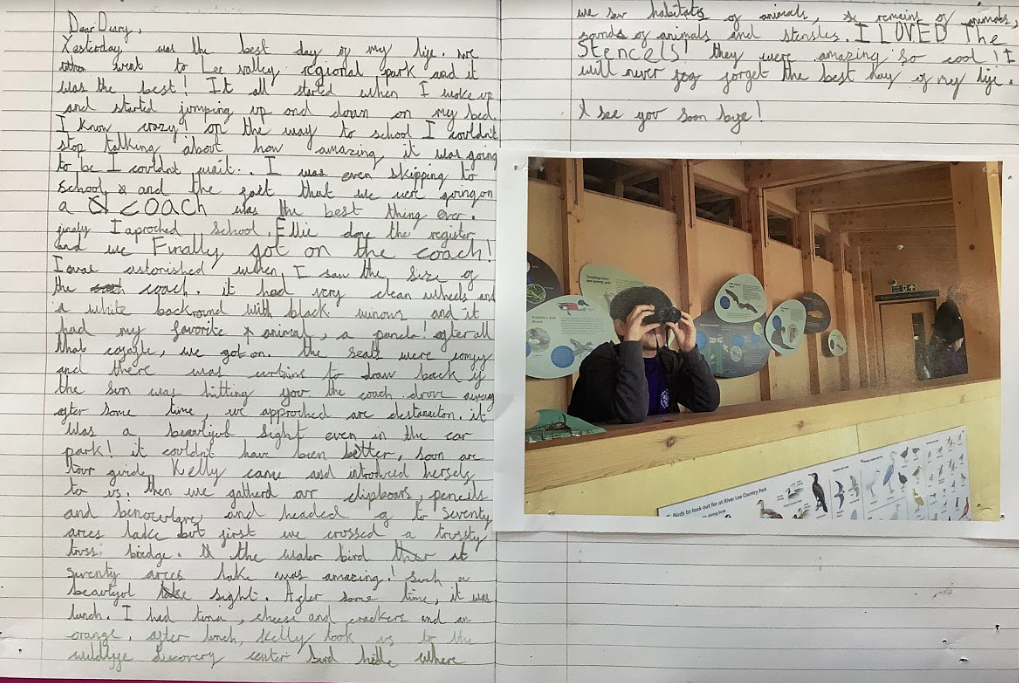 Dear Diary,
Yesterday was the best day of my life. we
went to Lee valley regional park and it
was the best! It all started when I woke up
and started jumping up and down on my bed.
I know crazy! on the way to school I couldn't
stop talking about how amazing it was going
to be I couldnt wait.. I was even skipping to
school and the fact that we were going on
a COACH was the best thing ever.
finaly I aproched school. Ellie done the register
and we Finally got on the coach!
I was astonished when I saw the size of
the coach. it had very clean wheels and
a white backround with black winows and it
had my favorite animal, a panda! after all
that we got on. the seats were comfy
and there was to draw back if
the sun was hitting you the coach drove away
after some time, we approched are it
was a beautifol sight even in the car
park! it couldn't have been better, soon are
tour guide Kelly came and herself
to us. then we gatherd our clipboars, pencils
and and headed to seventy
acres lake but first we crossed a trusty
bridge. the water bird at
seventy acres lake was amazing! Such a
beautifol sight. After some time, it was
lunch. I had tuna, cheese and crackers and an
orange. after lunch, Kelly took us to the
wildlife discovery center bird hide where
we saw habitats of animals, remains of animals,
sonds of animals and stensles. I LOVED The
Stencels! they were amazing so cool! I
will never forget the best day of my life.
I see you soon bye!
Birds to look out for at River Lee Country Park